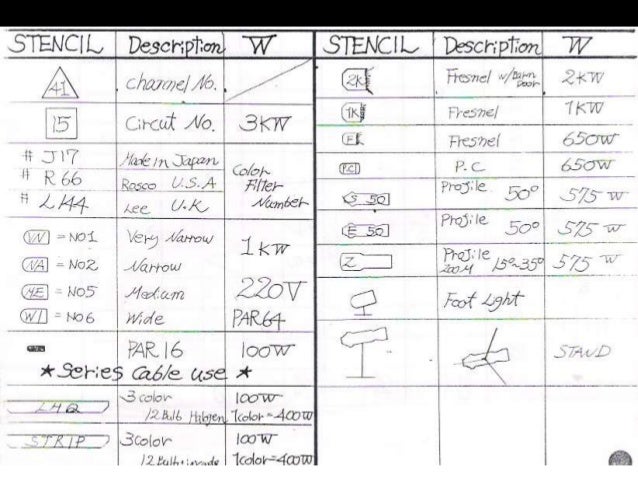 STENCIL Description W
41 Channel No.
15 Circut No. 3KW
# J17 Made in Japan
# R66 Rosco U.S.A
# L144 Lee U.K
Color Filter Number
VN = NO1 Very Narrow
NA = NO2 Narrow
ME = NO5 Medium
WI = NO6 Wide
1KW
220V
PAR64
PAR 16 100W
* Series Cable use *
LHQ 3 color 100W
12 Bulb Halogen 1color=400W
STRIP 3color 100W
12 Bulb 1color=400W
STENCIL Description W
2K Fresnel w/Barn Door 2KW
1K Fresnel 1KW
F Fresnel 650W
P.C P.C 650W
S 50 Profile 50° 575 W
E 50 Profile 50° 575 W
Z Profile 15°~35° 575 W
Foot Light
STAND